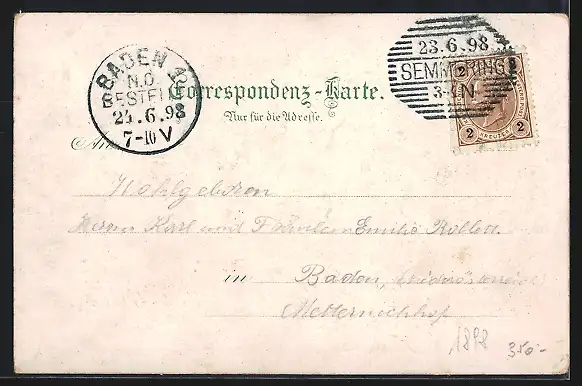 BADEN
N.Ö.
BESTELLT
24.6.98
7-10 V
23.6.98
SEMMERING
3-4 N
2
KREUZER
2 2
Correspondenz-Karte.
Nur für die Adresse.
An
Wohlgeboren
Herrn Karl und Fräulein Emilie Rollett
in Baden, Niederösterreich
Metternichhof
1898 350-